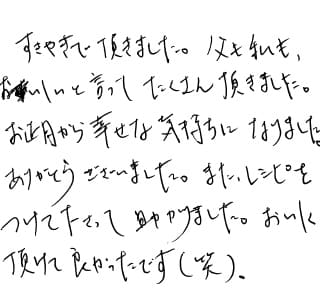 すきやきで頂きました。父も私も、
おいしいと言ってたくさん頂きました。
お正月から幸せな気持ちになりました
ありがとうございました。また、レシピを
つけて下さって助かりました。おいしく
頂けて良かったです(笑)。